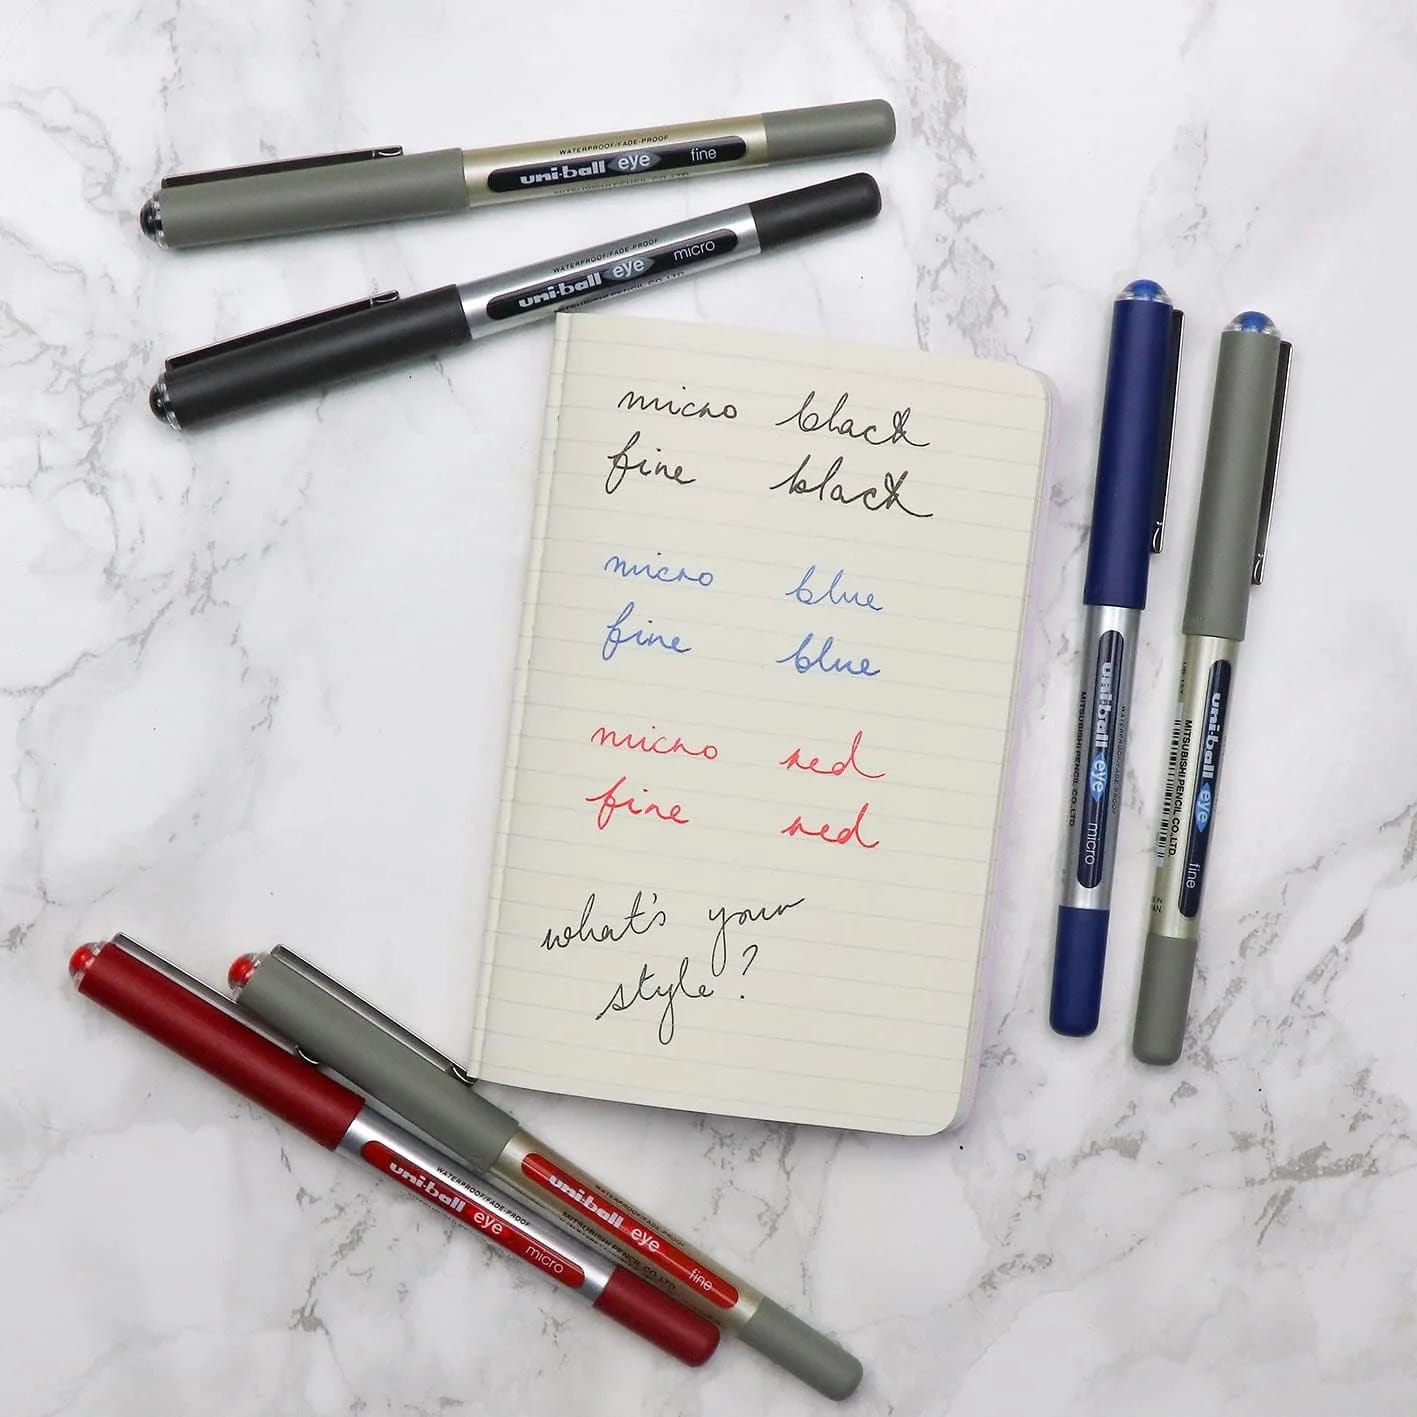 WATERPROOF/FADE-PROOF
uni-ball eye fine
WATERPROOF/FADE-PROOF
uni-ball eye micro
micro black
fine black
micro blue
fine blue
micro red
fine red
what's your
style?
WATERPROOF/FADE-PROOF
uni-ball eye micro
MITSUBISHI PENCIL CO.,LTD.
uni-ball eye fine
MITSUBISHI PENCIL CO.,LTD.
WATERPROOF/FADE-PROOF
uni-ball eye micro
WATERPROOF/FADE-PROOF
uni-ball eye fine
MITSUBISHI PENCIL CO.,LTD.